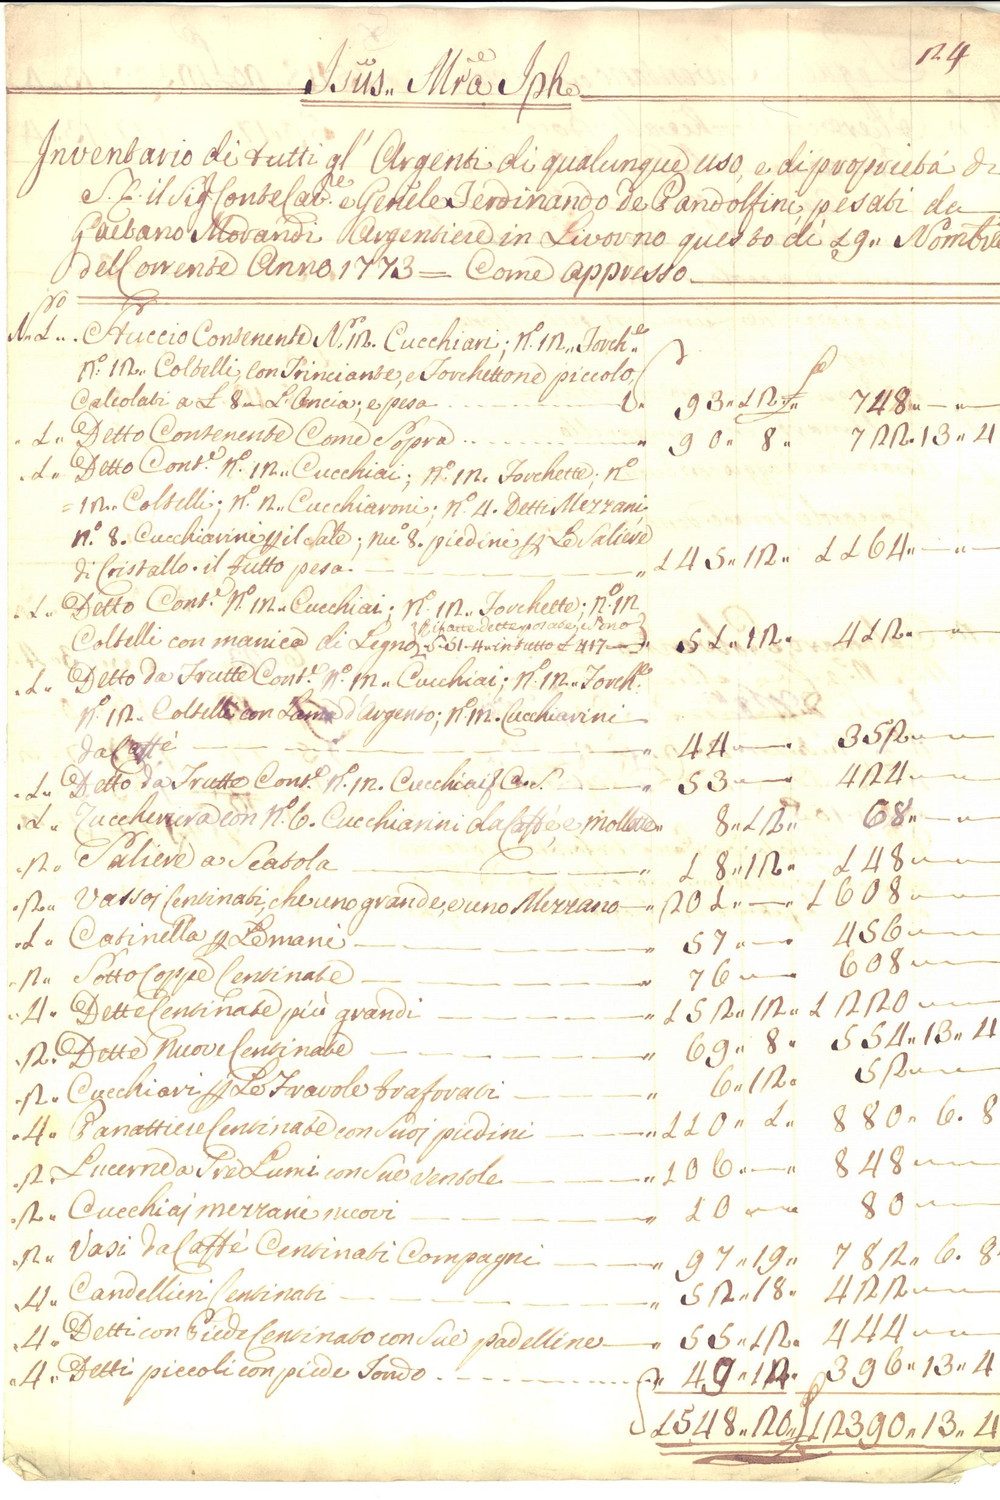 124
Jsüs,, Mra Jph.
Inventario di tutti gl' Argenti di qualunque uso, e di proprietà di
S. E. il Sig. Conte Cav.e e Gen.le Ferdinando de Pandolfini, pesati da
Gaetano Morandi Argentiere in Livorno questo dì 19,, Novembre
dell Corrente Anno 1773 = Come appresso
N.ro 1,, Stuccio Contenente N.ro 12. Cucchiari; N.o 12,, Forch.e
N.o 12,, Coltelli, con Trinciante, e Forchettone piccolo,
Calcolati a £ 8,, L'Oncia; e pesa 93,, 12,, 748,,
,, 1,, Detto Contenente Come Sopra ,, 90,, 8,, 722,, 13,, 4
,, 1,, Detto Cont.e N.o 12,, Cucchiai; N.o 12,, Forchette; N.o
= 12,, Coltelli; N.o 2,, Cucchiaroni; N.o 4. Detti Mezzani
N.o 8. Cucchiarini p il Sale; N.o 8. piedini p Le Saliere
di Cristallo. il Tutto pesa ,, 145,, 12,, 1164,,
,, 1,, Detto Cont.e N.o 12,, Cucchiai; N.o 12,, Forchette; N.o 12
Coltelli con manica di Legno 51,, 12,, 412,,
Rifatte dette posate, e sono
in tutto £ 417
,, 1,, Detto da Frutte Cont.e N.o 12,, Cucchiai; N.o 12,, Forch.e
N.o 12,, Coltelli con Lama d'Argento; N.o 12. Cucchiarini
da Caffè ,, 44,, 352,,
,, 1,, Detto da Frutte Cont.e N.o 12,, Cucchiai & C.o S. ,, 53,, 424,,
,, 1,, Zuccheriera con N.o 6. Cucchiarini da Caffè e mollette,, 8,, 12,, 68,,
,, 2,, Saliere a Scatola ,, 18,, 12,, 148,,
,, 2,, Vassoj Centinati, che uno grande, e uno Mezzano ,, 201,, 1608,,
,, 1,, Catinella p Le mani ,, 57,, 456,,
,, 2,, Sotto Coppe Centinate ,, 76,, 608,,
,, 4,, Dette Centinate più grandi ,, 152,, 12,, 1220,,
,, 2,, Dette Nuove Centinate ,, 69,, 8,, 554,, 13,, 4
,, 2,, Cucchiari p Le Fravole traforati ,, 6,, 12,, 52,,
,, 4,, Panattiere Centinate con Suoj piedini ,, 110,, 1,, 880,, 6,, 8
,, 2,, Lucerne da Tre Lumi con Sue ventole ,, 106,, 848,,
,, 2,, Cucchiaj mezzani nuovi ,, 10,, 80,,
,, 2,, Vasi da Caffè Centinati Compagni ,, 97,, 19,, 782,, 6,, 8
,, 4,, Candellieri Centinati ,, 52,, 18,, 422,,
,, 4,, Detti con Piede Centinato con Sue padelline ,, 55,, 12,, 444,,
,, 4,, Detti piccoli con piede Tondo ,, 49,, 14,, 396,, 13,, 4
1548,, 20,, 12390,, 13,, 4